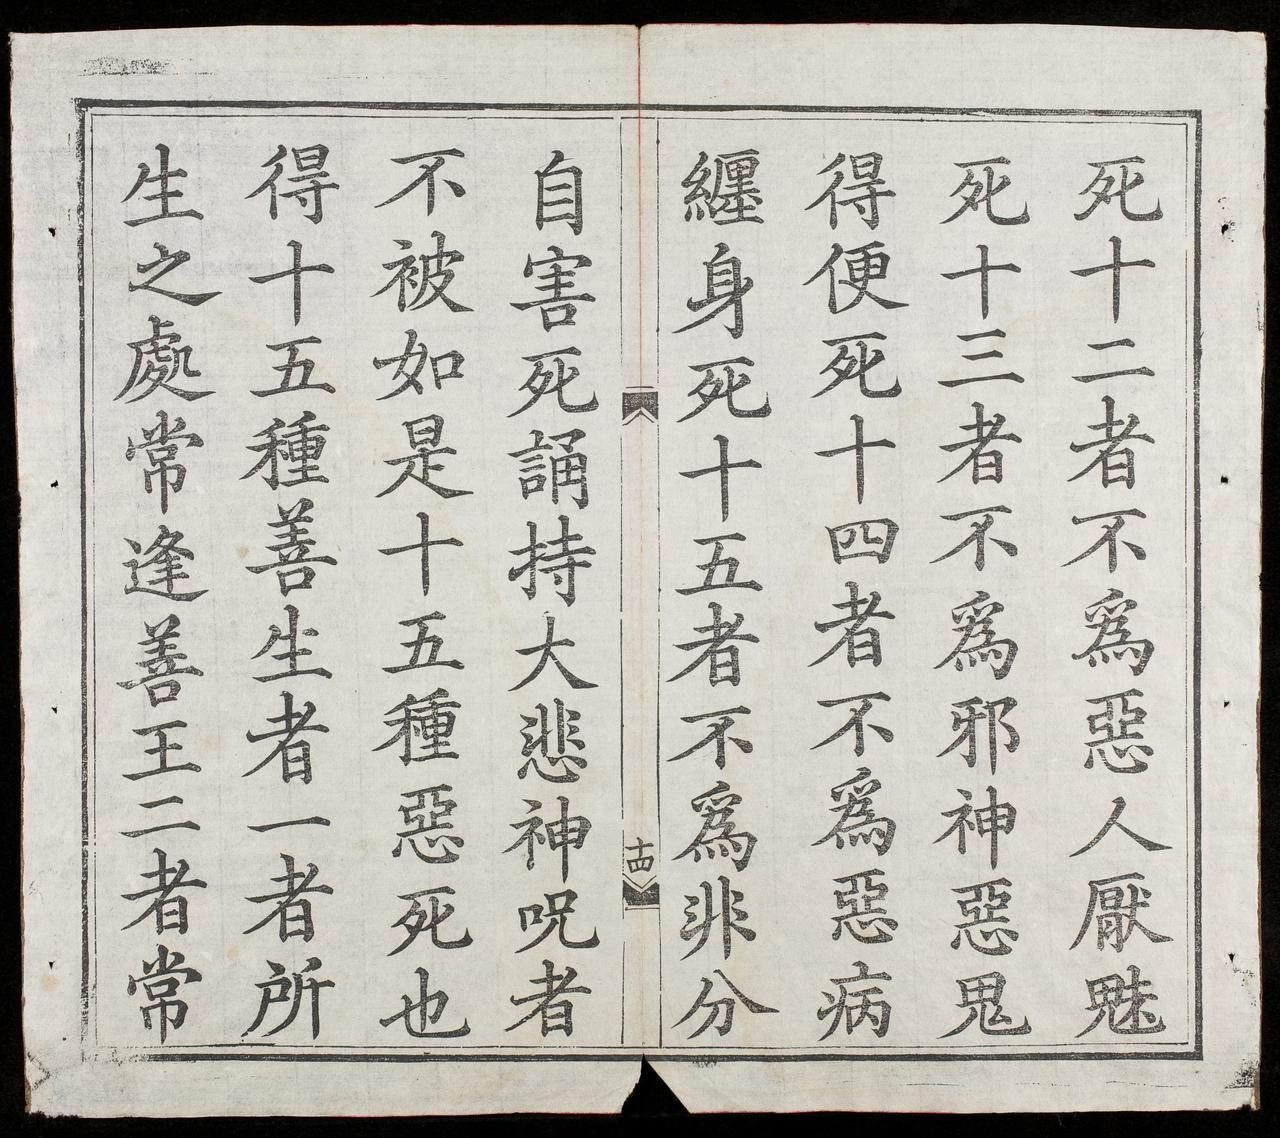 死十二者不爲惡人厭魅
死十三者不爲邪神惡鬼
得便死十四者不爲惡病
纏身死十五者不爲非分
十四
自害死誦持大悲神呪者
不被如是十五種惡死也
得十五種善生者一者所
生之處常逢善王二者常